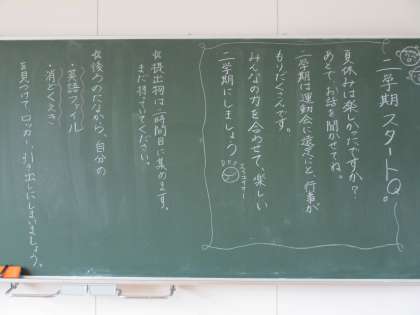 二学期スタート。
夏休みは楽しかったですか?
あとで、お話を聞かせてね。
二学期は運動会に遠足にと、行事が
もりだくさんです。
みんなの力を合わせて、楽しい
二学期にしましょう。
☆提出物は二時間目に集めます。
まだ持っていてください。
☆後ろのたなから、自分の
・英語ファイル
・消どくえき
を見つけて、ロッカー、引き出しにしまいましょう。